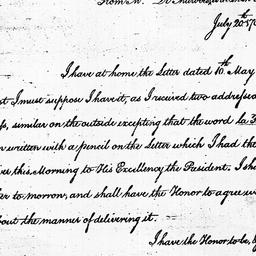 From M.
July 20th 17
I have at home the Letter dated 10th May
st I must suppose I have it, as I received two addressed
ss, similar on the outside excepting that the word la 3
n written with a pencil on the Letter which I had the
ver this Morning to His Excellency the President. I sha
ter to morrow, and shall have the Honor to agree wi
bout the manner of delivering it.
I have the Honor to be, &